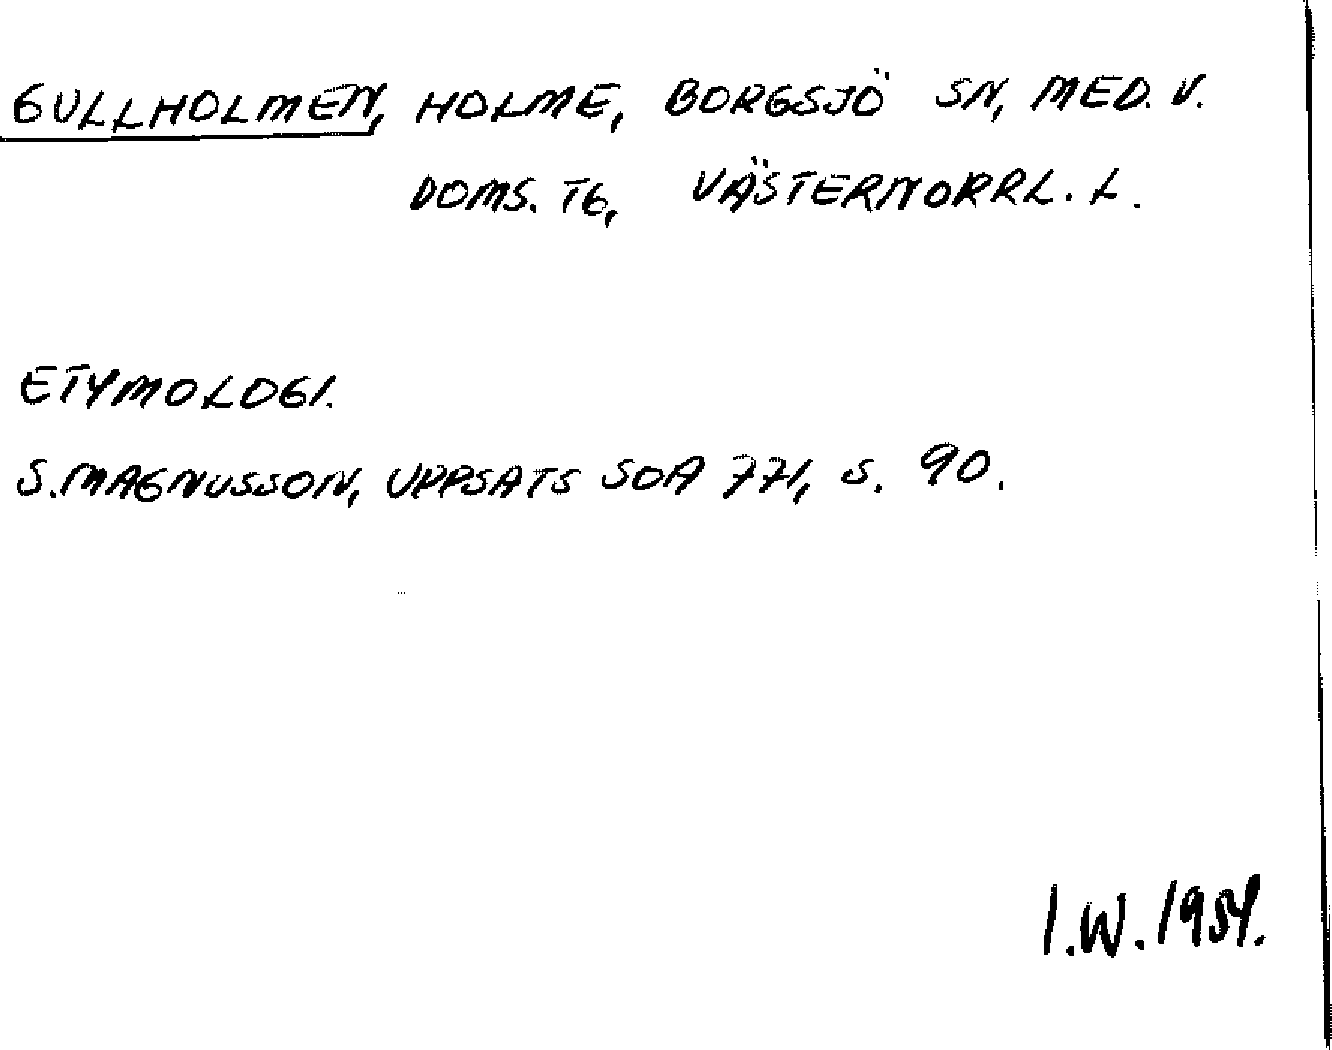 GULLHOLMEN, HOLME, BORGSJÖ SN, MED. V.
DOMS. TG, VÄSTERNORRL. L.
ETYMOLOGI.
S. MAGNUSSON, UPPSATS SOA 771, S. 90.
I.W. 1954.